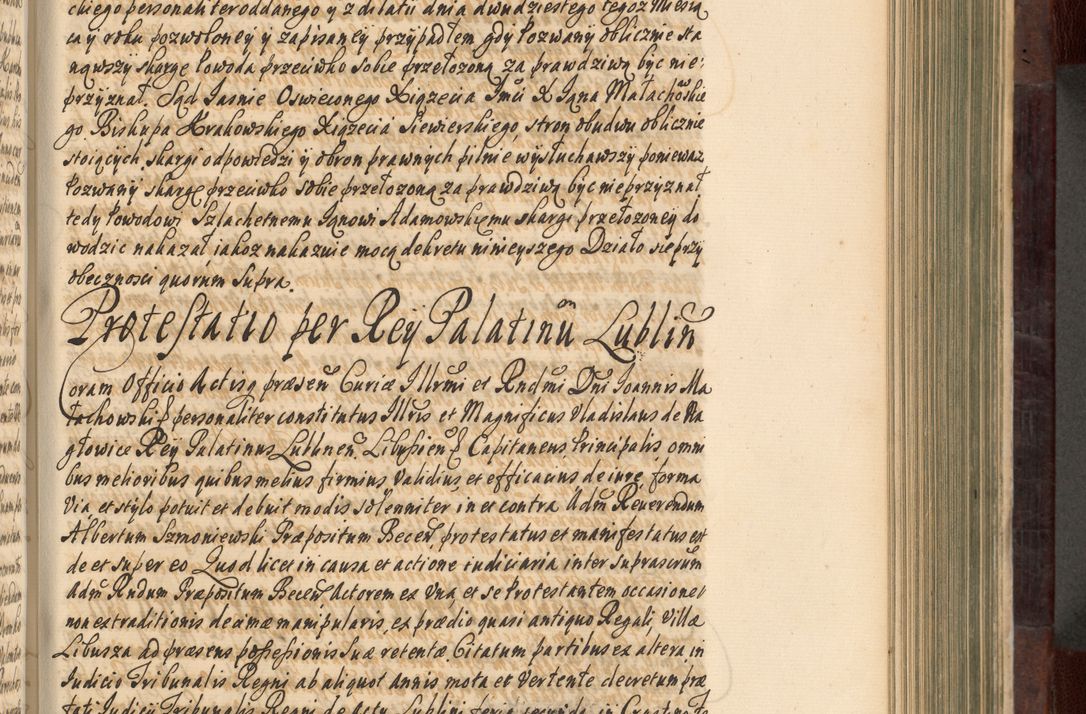 ckiego personaliter oddanego y z dilatii dnia dwudziestego tegoz Miesią
ca y roku pozwoloney y zapisaney przypadłem gdy Pozwany oblicznie sta
nąwszy skargę Powoda przeciwko sobie przełozoną za prawdziwą byc nie:
przyznał. Sąd Jasnie Oswieconego Xiązęcia Jmci X Jana Małachowskie
go Biskupa Krakowskiego Xiązęcia Siewierskiego, stron obudwu oblicznie
stoiących, skargi odpowiedzi y obron prawnych pilnie wysłuchawszy poniewaz
Pozwany skargę przeciwko sobie przełozoną za prawdziwą byc nieprzyznał
tedy Powodowi Szlachetnemu Janowi Adamowskiemu skargi przełozoney do
wodzic nakazał, iakoz nakazuie mocą dekretu ninieyszego Działo się przy
obecznosci quorum supra.
Protestatio per Rey Palatinum Lublin
Coram Officio Actisq præsen Curiæ Illrmi et Rndmi Dni Joannis Ma
łachowski personaliter constitutus Illris et Magnificus Vladislaus de Na
głowice Rey Palatinus Lublinen. Libusien Capitaneus Principalis omni
bus melioribus quibus melius firmius validius, et efficacius de iure, forma
via et stylo potuit et debuit modis sollenniter in et contra Adm Reuerendum
Albertum Szmoniewski Præpositum Becen, protestatus et manifestatus est
de et super eo Quod licet in causa et actione iudiciaria inter suprascrum
Adm Rndum Præpositum Becen Actorem ex Vna, et se Protestantem occasione
non extraditionis decimæ manipularis, ex prædio quasi antiquo Regali, Villæ
Libusza ad præsens possessionis suæ retentæ. Citatum partibus ex altera, in
Iudicio Tribunalis Regni ab aliquot annis mota et vertente decretum præ
fati Iudicii Tribunalis Regni de Actu Lublini feria secunda in Crastino